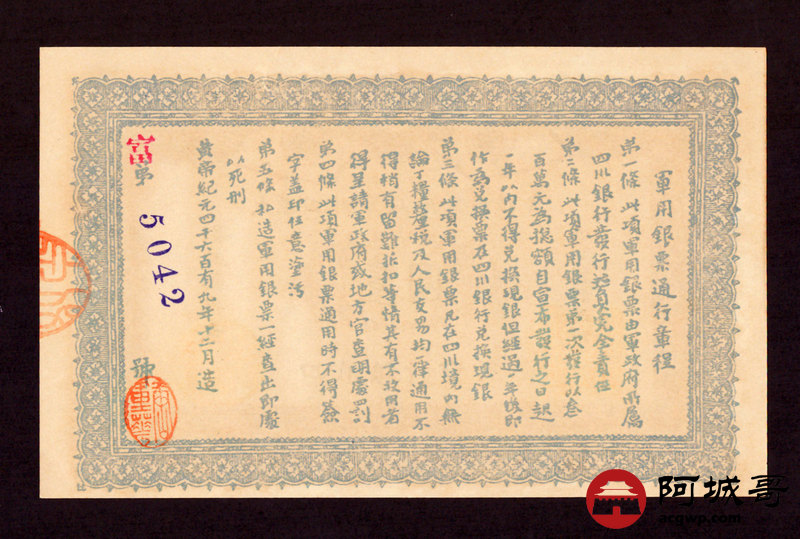 軍用銀票通行章程
第一條此項軍用銀票由軍政府所屬
四川銀行發行並負完全責任
第二條此項軍用銀票第一次發行以叁
百萬元為總額自宣布發行之日起
一年以內不得兌換現銀但經過一年後即
作為兌換票在四川銀行兌換現銀
第三條此項軍用銀票凡在四川境內無
論丁糧釐稅及人民交易均一律通用不
得稍有留難折扣等情其有不收用者
得呈請軍政府或地方官查明處罰
第四條此項軍用銀票通用時不得簽
字蓋印任意塗污
第五條私造軍用銀票一經查出即處
以死刑
黃帝紀元四千六百有九年十二月造
富第5042號
阿城哥
acgwp.com